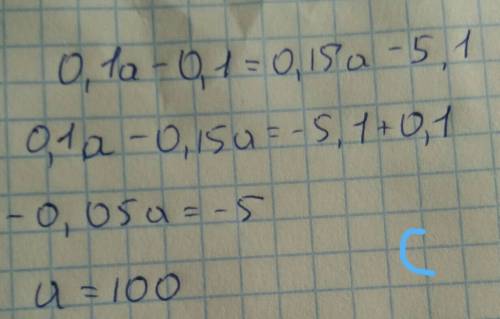 0,1a - 0,1 = 0,15a - 5,1
0,1a - 0,15a = -5,1 + 0,1
-0,05a = -5
a = 100
C